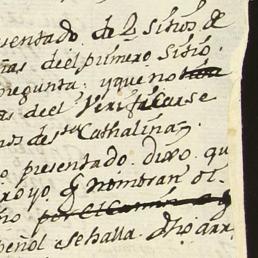 esentado de 2 sitios de
ñas de el primero sitio.
pregunta, y que no
as de el Verificarse
nos de s.ta Cathalina,
o presentado. Dixo. qu
rroyo q nombran el
no por el Camino
pañol se halla. dho arr